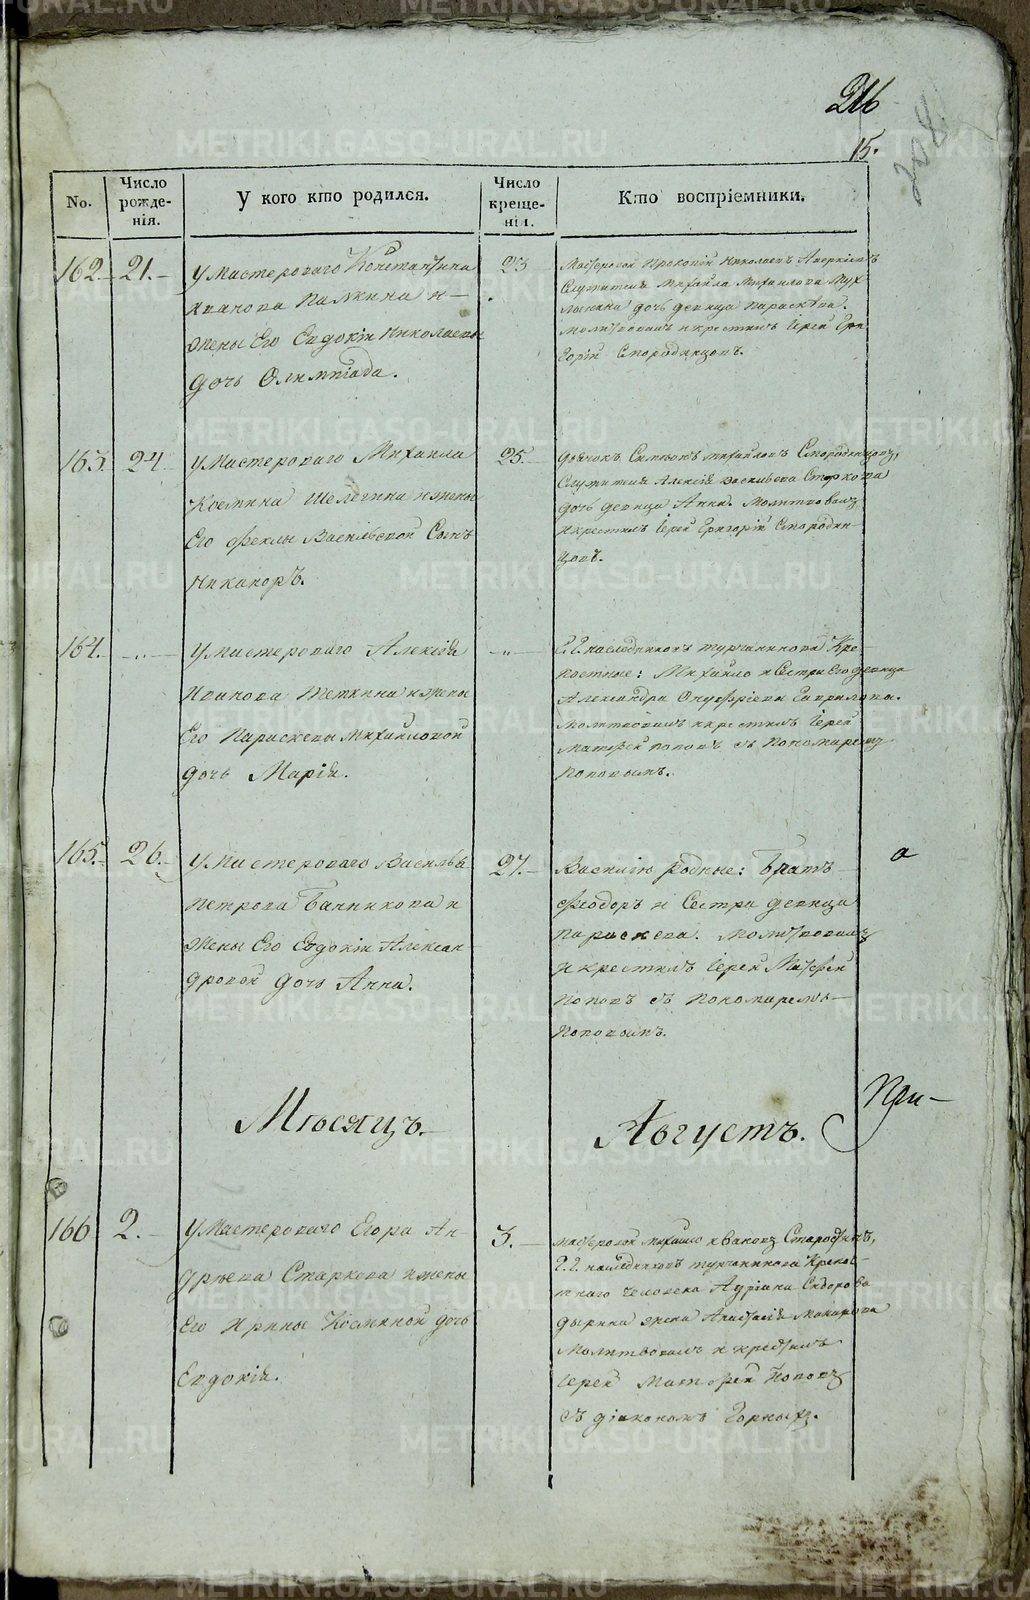 216
15.
No.
Число рожде-нія.
У кого кто родился.
Число креще-нія.
Кто воспріемники.
162. 21.
У Мастероваго Константина
Иванова Палкина и
жены Его Евдокіи Николаевы
дочь Олимпіада.
23
Мастеровой Прокопій Николаевъ
Служителя Михайла Михайлова
дочь девица Параскева.
молитвовалъ и крестилъ Іерей Гри-
горій Смородинцовъ.
163. 24
У Мастероваго Михаила
Космина Шелегина и жены
Его Феклы Васильевой Сынъ
Никаноръ.
25.
Симеонъ Михайловъ Смородинцовъ,
Служителя Алексія Васильева Старкова
дочь девица Анна. Молитвовалъ
и крестилъ Іерей Григорій Смородин-
цовъ.
164. -„-
У Мастероваго Алексія
Иванова Теткина и жены
Его Параскевы Михайловой
дочь Марія.
-„-
Г.Г. наследниковъ Турчанинова Кре-
постные: Михайло и Сестра Его девица
Александра Онуфріевы Гавриловы.
Молитвовалъ и крестилъ Іерей
Матфей Поповъ съ Пономаремъ
Поповымъ.
165. 26.
У Мастероваго Василья
Петрова Банникова и
жены Его Евдокіи Алексан-
дровой дочь Анна.
27.
Василію родные: Братъ
Феодоръ и Сестра девица
Параскева. Молитвовалъ
и крестилъ Іерей Матфей
Поповъ съ Пономаремъ
Поповымъ.
а
Мѣсяцъ.
Августъ.
При-
166 2.
У Мастероваго Егора Ан-
дрѣева Старкова и жены
Его Ирины Косминой дочь
Евдокія.
3.
Мастеровой Михайло Иваковъ Старостинъ,
Г.Г. наследниковъ Турчанинова Крепос-
тнаго человека Адріана Сидорова
жена Анастасія Макарова
Молитвовалъ и крестилъ
Іерей Матфей Поповъ
съ діакономъ Горныхъ.
METRIKI.GASO-URAL.RU